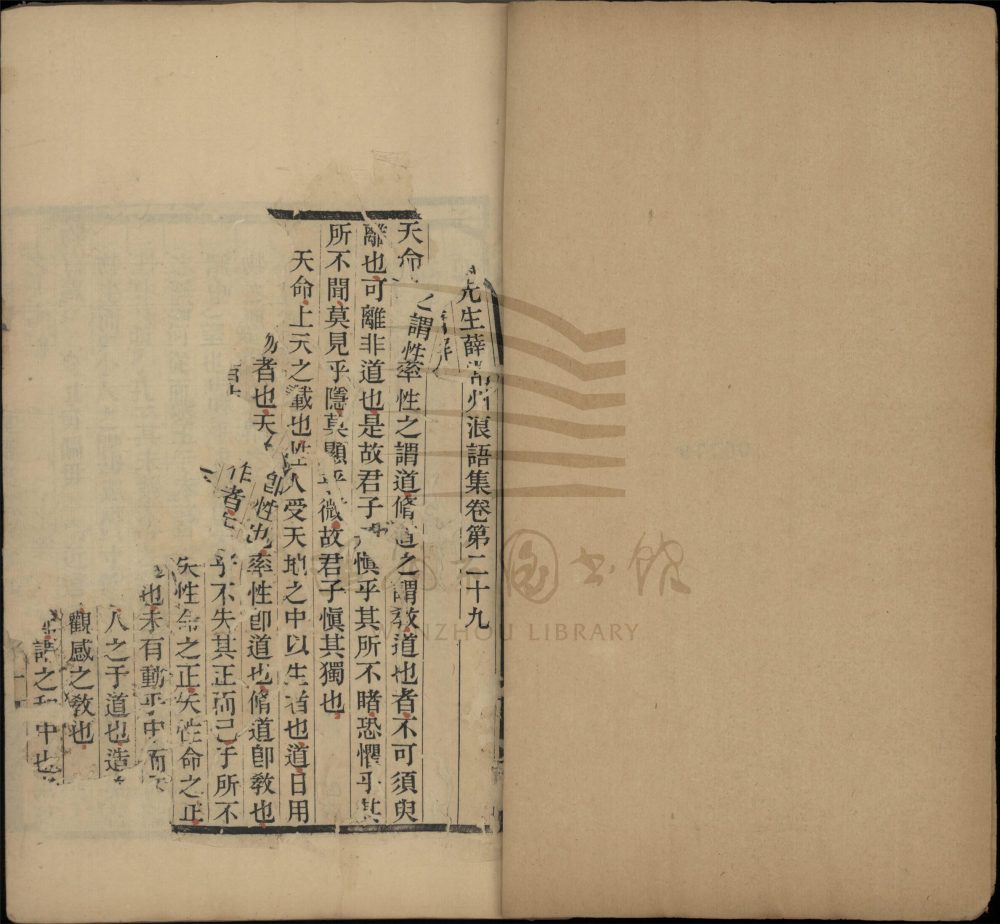 先生薛常州浪語集卷第二十九
天命之謂性率性之謂道脩道之謂敎道也者不可須臾
離也可離非道也是故君子慎乎其所不睹恐懼乎其
所不聞莫見乎隱莫顯乎微故君子愼其獨也
天命上天之載也性人受天地之中以生者也道日用
者也天卽性也率性卽道也脩道卽敎也
作者乎不失其正而已于所不
失性命之正失性命之正
也未有動乎中而
人之于道也造
觀感之敎也
謂之和中也
WENZHOU LIBRARY